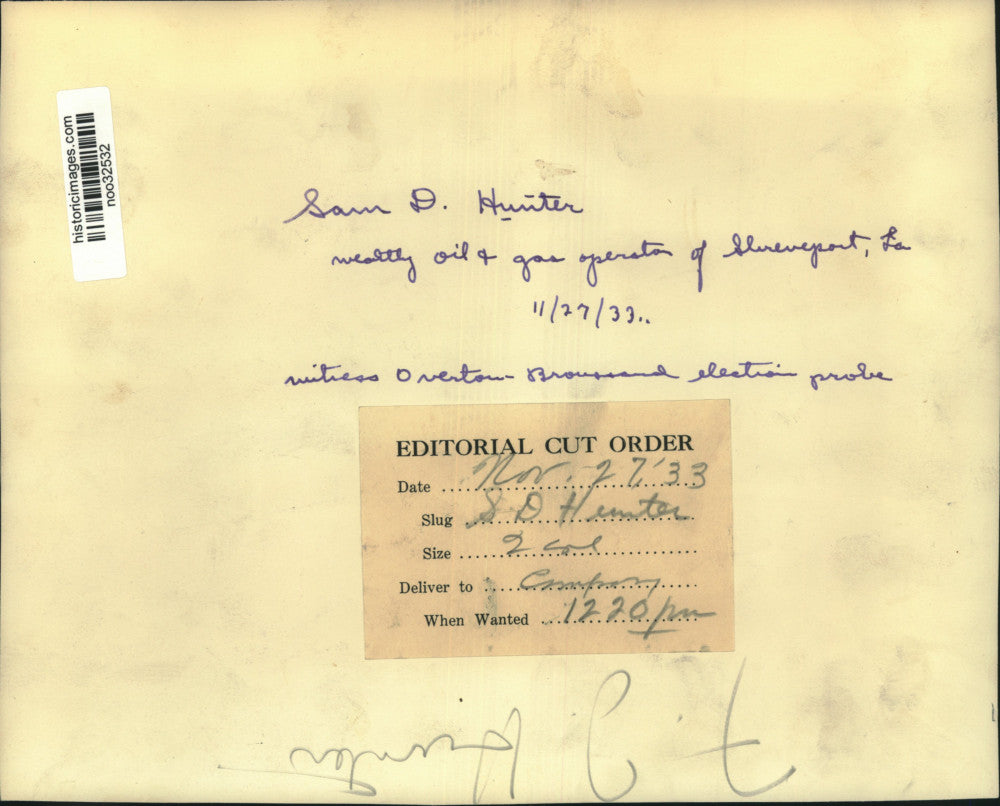 historicimages.com
noo32532
Sam D. Hunter
wealthy oil & gas operator of Shreveport, La
11/27/33..
witness Overton-Broussard election probe
EDITORIAL CUT ORDER
Date Nov. 27 '33
Slug S D Hunter
Size 2 col
Deliver to Company
When Wanted 12 20 pm
Hunter